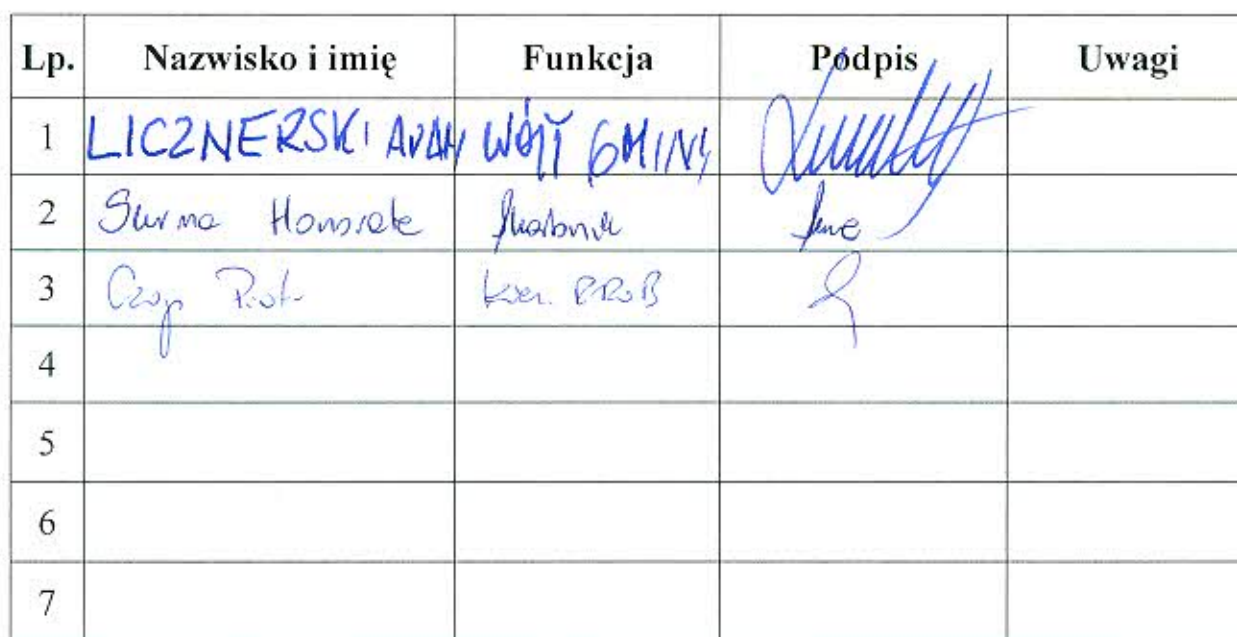 Lp. Nazwisko i imię Funkcja Podpis Uwagi
1 LICZNERSKI ADAM WÓJT GMINY
2 Surma Honorata Skarbnik
3 Czop Piotr kier. RRoB
4
5
6
7